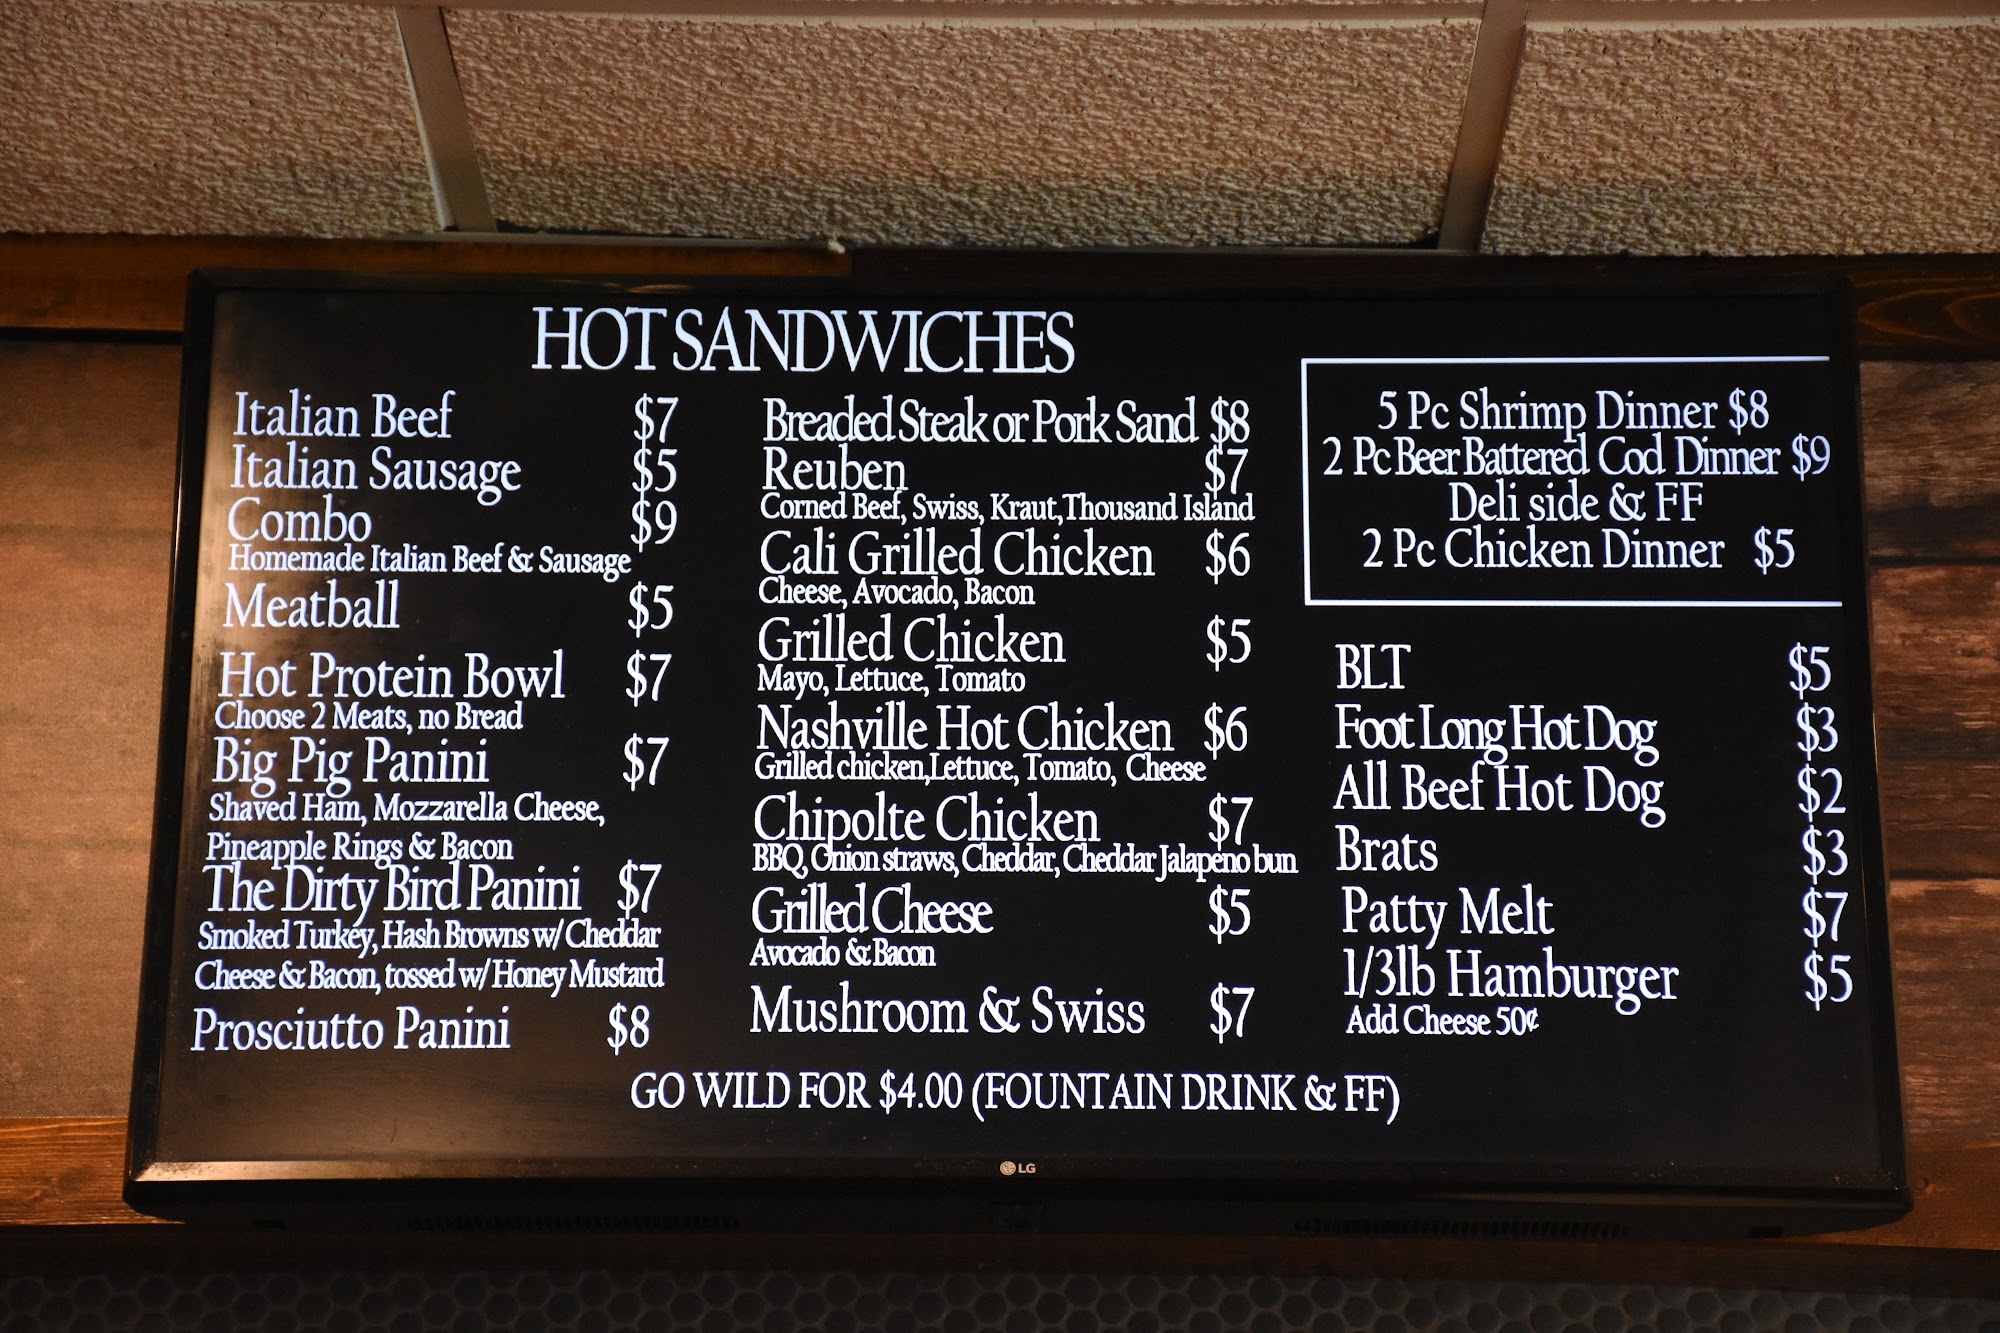 HOT SANDWICHES
Italian Beef $7
Italian Sausage $5
Combo $9
Homemade Italian Beef & Sausage
Meatball $5
Hot Protein Bowl $7
Choose 2 Meats, no Bread
Big Pig Panini $7
Shaved Ham, Mozzarella Cheese,
Pineapple Rings & Bacon
The Dirty Bird Panini $7
Smoked Turkey, Hash Browns w/ Cheddar
Cheese & Bacon, tossed w/ Honey Mustard
Prosciutto Panini $8
Breaded Steak or Pork Sand $8
Reuben $7
Corned Beef, Swiss, Kraut,Thousand Island
Cali Grilled Chicken $6
Cheese, Avocado, Bacon
Grilled Chicken $5
Mayo, Lettuce, Tomato
Nashville Hot Chicken $6
Grilled chicken,Lettuce, Tomato, Cheese
Chipolte Chicken $7
BBQ, Onion straws, Cheddar, Cheddar Jalapeno bun
Grilled Cheese $5
Avocado & Bacon
Mushroom & Swiss $7
5 Pc Shrimp Dinner $8
2 Pc Beer Battered Cod Dinner $9
Deli side & FF
2 Pc Chicken Dinner $5
BLT $5
Foot Long Hot Dog $3
All Beef Hot Dog $2
Brats $3
Patty Melt $7
1/3lb Hamburger $5
Add Cheese 50¢
GO WILD FOR $4.00 (FOUNTAIN DRINK & FF)
LG